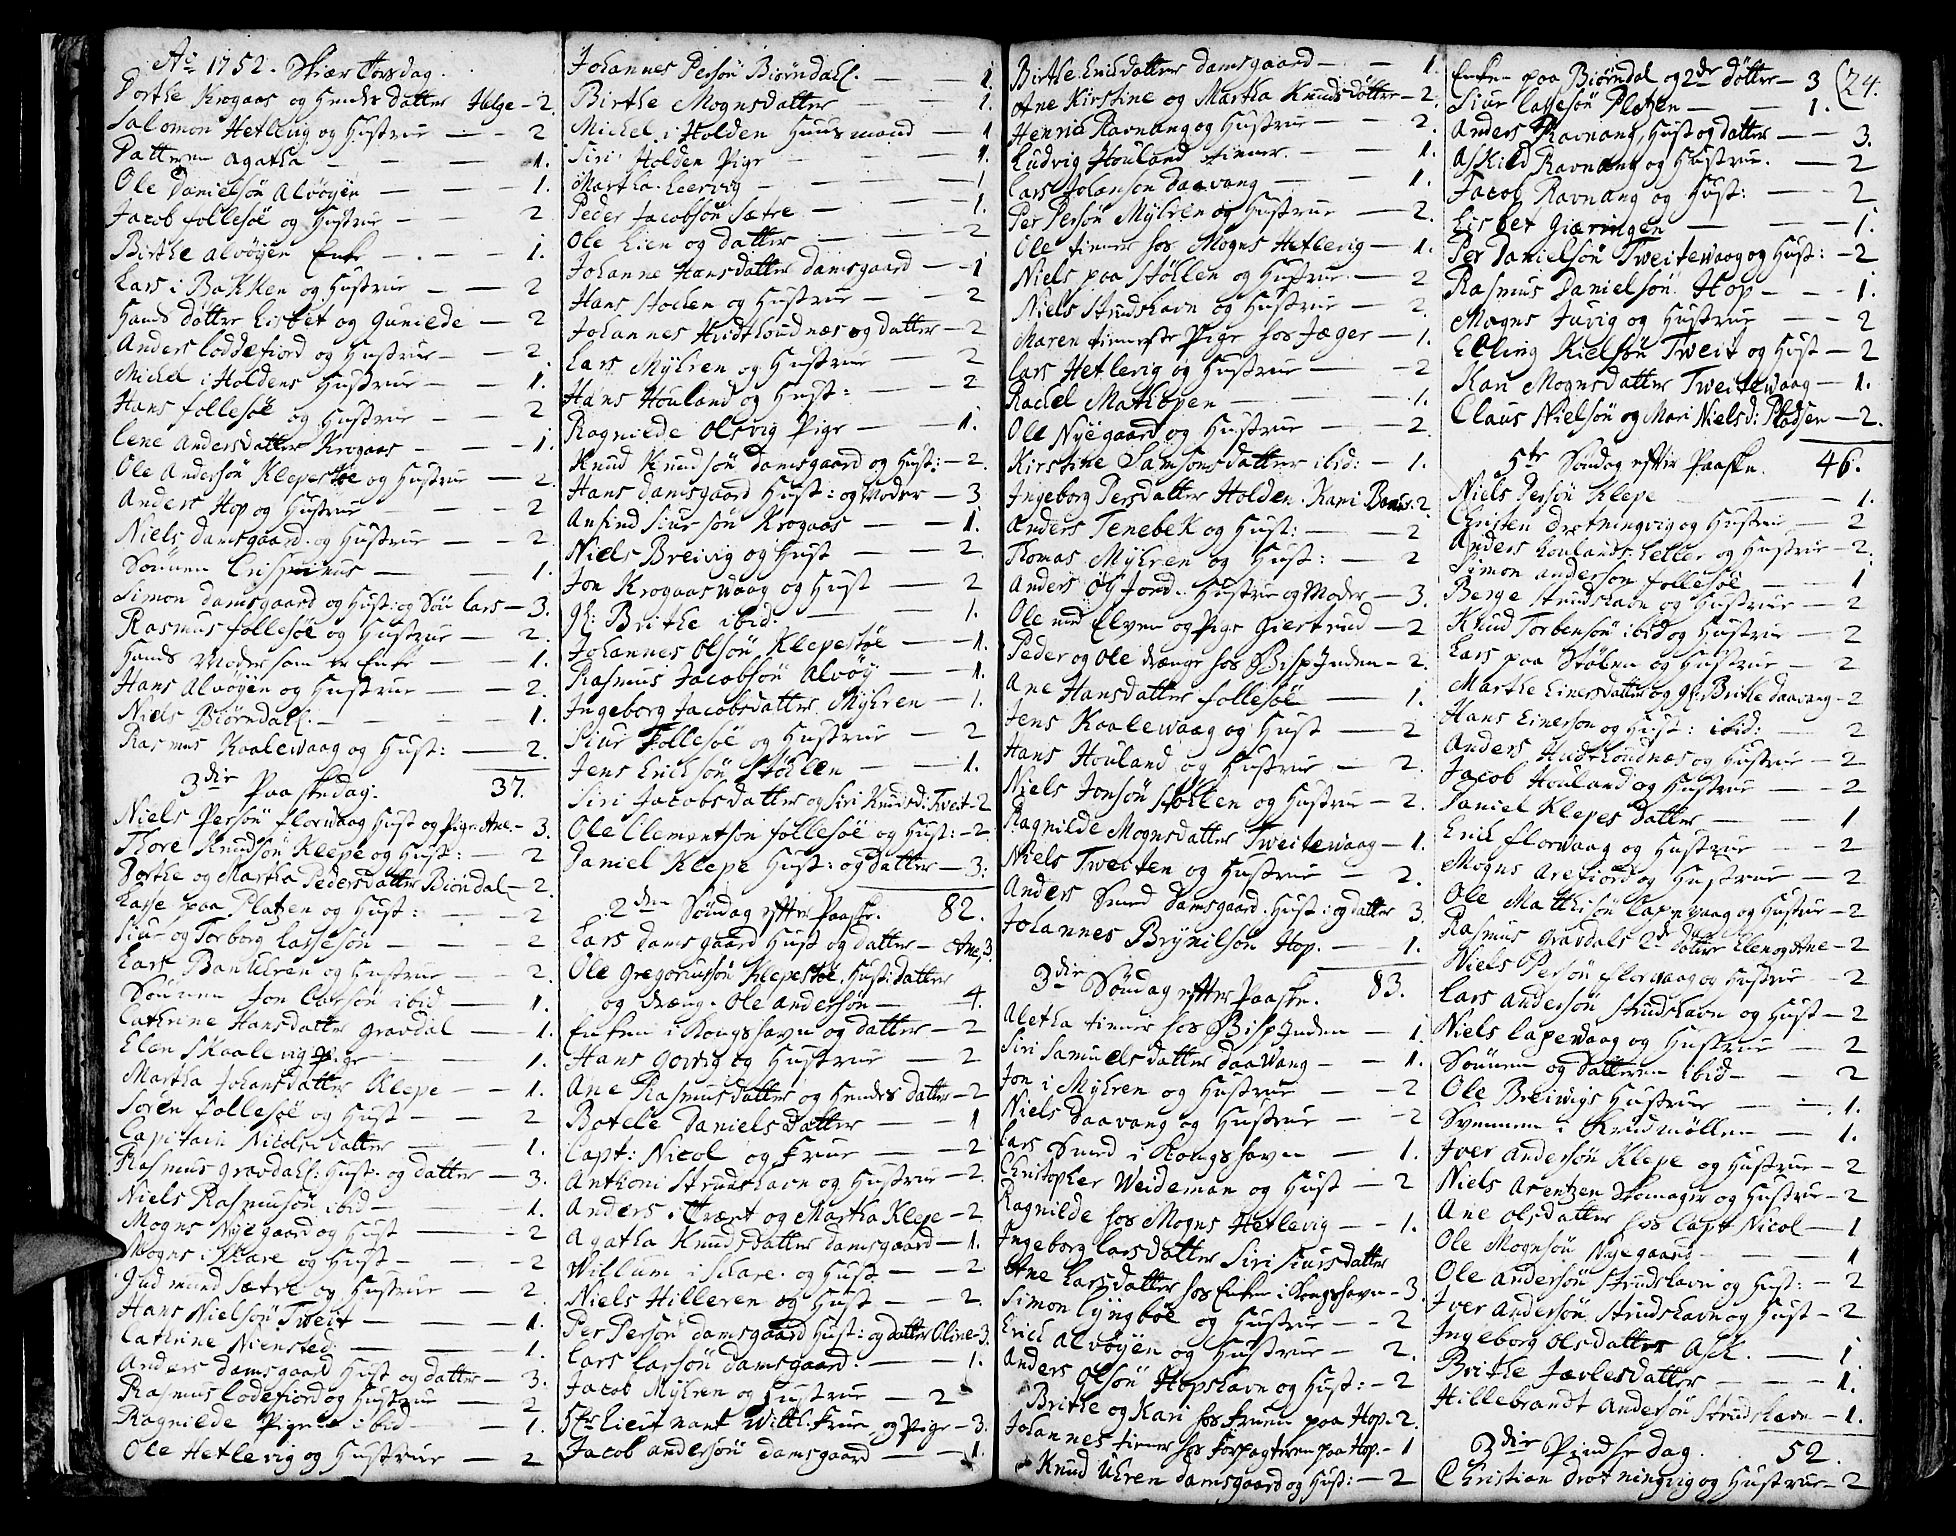 Ao 1752. Skiær Torsdag.
Dorthe Krogaas og hendes datter Helge - 2.
Salomon Hetlevig og Hustrue - 2
Datteren Agatha - 1.
Ole Danielsøn Alvøyen - 1.
Jacob follesøe og Hustrue - 2
Birthe Alvøyen Enke - 1.
Lars i Bakken og Hustrue - 2
Hands døttre Lisbet og Gunilde - 2
Anders Loddefiord og Hustrue - 2.
Michel i Holdens Hustrue - 1.
Hans follesøe og Hustrue - 2
Lene Andersdatter Krogaas - 1.
Ole Andersøn Klepestøe og Hustrue - 2.
Anders Hop og Hustrue - 2
Niels Damsgaard og Hustrue - 2.
Sønnen Crispinus - 1.
Simon damsgaard og Hust: og Søn Lars - 3.
Rasmus follesøe og Hustrue - 2.
Hands Moder som er Enke - 1.
Hans Alvøyen og Hustrue - 2.
Niels Biørndahl - 1.
Rasmus Kaalewaag og Hust: - 2.
3die Paaskedag. 37.
Niels Persøn florwaag Hust og Pige Ane - 3.
Thore Knudsøn Klepe og Hust: - 2
Dorthe og Martha Pedersdatter Biøndal - 2.
Lasse paa Platzen og Hust: - 2
Siur og Torborg Lassesøn - 2
Lars Bankelren og Hustrue - 2.
Sønnen Jon Larsøn ibid - 1.
Cathrine Hansdatter gravdal - 1.
Elen Skaalevig pige - 1.
Martha Johansdatter Klepe - 1.
Søren follesøe og Hust - 2
Capitain Nicols datter - 1.
Rasmus gravdahl: Hust: og datter - 3.
Niels Rasmusøn ibid - 1.
Mogns Nyegaard og Hust - 2
Mogns i Skare og Hust - 2
Gudmund Sætre og Hustrue - 2.
Hans Nielsøn Tweit - 1.
Cathrine Niensted: - 1.
Anders damsgaard Hust og datter - 3.
Rasmus Lodefiord og Hustrue - 2
Ragnilde Pige ibid - 1.
Ole Hetlevig og Hustrue - 2
Johannes Persøn Biørndahl. - 1.
Birthe Mognsdatter - 1.
Michel i Holden Huusmand - 1
Siri Holden Pige - 1.
Martha Leervig - 1
Peder Jacobsøn Sætre - 1.
Ole Lien og datter - 2
Johanne Hansdatter damsgaard - 1
Hans Støhlen og Hustrue - 2
Johannes Huidtloudnæs og datter - 2
Lars Mÿhren og Hustrue - 2
Hans Houland og Hust: - 2
Ragnilde Olsvig Pige - 1.
Knud Knudsøn Damsgaard og Hust: - 2.
Hans damsgaard Hust: og Moder - 3
Anfind Siursøn Krogaas - 1.
Niels Breivig og Hust - 2.
Jon Krogaaswaag og Hust - 2
gl: Brithe ibid. - 1.
Johannes Olsøn Klepestøe - 1.
Rasmus Jacobsøn Alvøy - 1.
Ingeborg Jacobsdatter Mÿhren - 1.
Siur Follesøe og Hustrue - 2
Jens Erichsøn Støhlen - 1.
Siri Jacobsdatter og Siri Knudsd: Tweit - 2
Ole Clementsøn follesøe og Hust: - 2
Daniel Klepe Hust: og datter - 3.
2den Søndag efter Paaske. 82.
Lars Damsgaard Hust og datter Ane, 3.
Ole Gregoriussøn Klepestøe, Hust: datter
og dreng Ole Andersøn - 4.
Enken i Kongshavn og datter - 2
Hans Gowig og Hustrue - 2
Ane Rasmusdatter og hendes datter - 2
Botele Danielsdatter - 1
Capt: Nicol og Frue - 2
Anthoni Strudshavn og Hustrue - 2.
Anders i Træet og Martha Klepe - 2
Agatha Knudsdatter damsgaard - 1.
Willum i Schare og Hust - 2
Niels Hilleren og Hust - 2.
Per Persøn damsgaard Hust: og datter Oline - 3.
Lars Larsøn damsgaard: - 1.
Jacob Mÿhren og Hustrue - 2
Hr Lieutnant Wilh: Frue og Pige - 3.
Jacob Andersøn damsgaard - 1.
Birthe Erichsdatter damsgaard - 1.
Ane Kirstine og Martha Knudsdøttre - 2.
Henrich Ravnang og Hustrue - 2.
Ludvig Houland tiener. - 1.
Lars Johanson daavang - 1.
Per Persøn Mÿhren og Hustrue - 2.
Ole tiener hos Mogns Hetlevig - 1.
Niels paa Støhlen og Hustrue - 2
Niels Strudshavn og Hustrue - 2.
Maren tieneste Pige hos Jæger - 1.
Lars Hetlevig og Hustrue - 2
Rachel Mathopen - 1.
Ole Nyegaard og Hustrue - 2.
Kirstine Samsonsdatter ibid: - 1.
Ingeborg Persdatter Holden. Kari - 2
Anders Tenebek og Hust: - 2
Thomas Mÿhren og Hust: - 2
Anders Øyjord. Hustrue og Moder - 3.
Ole ved Elven og Pige Giertrud - 2
Peder og Ole drænge hos Bisp Juden - 2.
Ane Hansdatter follesøe - 1.
Jens Kaalewaag og Hust - 2
Hans Houland og Hustrue - 2.
Niels Jonsøn Støhlen og Hustrue - 2.
Ragnilde Mognsdatter Tweitewaag - 1.
Niels Tweiten og Hustrue - 2.
Anders Smed damsgaard. Hust: og datter 3.
Johannes Brÿnilsøn Hop. - 1.
3die Søndag efter Paaske. 83.
Aletha tiener hos Bisp Juden - 1.
Siri Samuelsdatter daawang - 1.
Jon i Mÿhren og Hustrue - 2
Niels Daavang og Hustrue - 2
Lars Smed i Kongshavn - 1.
Christopher Weideman og Hust - 2
Ragnilde hos Mogns Hetlevig - 1.
Ingeborg Larsdatter Siri Siursdatter
Ane Larsdatter hos Enken i Kongshavn - 3.
Simon Lÿngboe og Hustrue - 2
Erich Alvøyen og Hustrue - 2.
Anders Olsøn Hopshavn og Hust: - 2
Brithe og Kari hos Fruen paa Hop - 2.
Johannes tiener hos Forpagteren paa Hop. - 1
Knud Uhren damsgaard og Hust: - 2
Enken paa Biørndal og 2de døttre - 3 (24.
Siur Lassesøn Platzen - 1.
Anders Ravnang, Hust og datter - 3.
Askild Ravnang og Hustrue. - 2
Jacob Ravnang og Hust: - 2
Lisbet Giæringen - 1.
Per Danielsøn Tweitewaag og Hust: - 2
Rasmus Danielsøn Hop - 1.
Mogns Juvig og Hustrue - 2
Elling Kielsøn Tweit og Hust - 2
Kari Mognsdatter Tweitewaag - 1.
Claus Nielsøn og Mari Nielsd: Pladsen - 2.
5te Søndag efter Paaske. 46.
Niels Persøn Klepe - 1.
Christen Drotningvig og Hustrue - 2
Anders Loulands og Hustrue - 2.
Simon Anderson follesøe - 1
Berge Strudshavn og Hustrue - 2
Knud Torbensøn ibid og Hustrue - 2
Lars paa Støhlen og Hustrue - 2
Marthe Einersdatter og gl: Brithe daavang - 2
Hans Einerson og Hust: ibid: - 2
Anders Huidtloudnæs og Hustrue - 2
Jacob Houland og Hustrue - 2
Daniel Klepes datter - 1
Erich florwaag og Hustrue - 2
Mogns Arefiord og Hustrue - 2
Ole Mathisøn Lapewaag og Hustrue - 2
Rasmus Gravdals 2de døttre Elen og Ane - 2
Niels Persøn florwaag og Hustrue - 2
Lars Andersøn Strudshavn og Hust - 2
Niels Lapewaag og Hustrue - 2
Sønnen og Datteren ibid - 2
Ole Breivigs Hustrue - 1.
Svennen i Krudmøllen - 1.
Iver Andersøn Klepe og Hustrue - 2
Niels Arentzen Skomager og Hustrue - 2
Ane Olsdatter hos Capt Nicol - 1
Ole Mognsøn Nyegaard - 1
Ole Andersøn Strudshavn og Hust: - 2
Iver Andersøn Strudshavn og Hust - 2
Ingeborg Olsdatter Ask. - 1
Brithe Jævlesdatter - 1.
Hillebrandt Andersøn Strudshavn - 1.
3die Pindsedag. 52.
Christian Drotningvig og Hustrue - 2